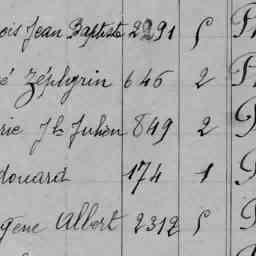 ois Jean Baptiste 2291 5
é Zéphyrin 646 2
rie Jh Julien 849 2
douard 174 1
gène Albert 2312 5